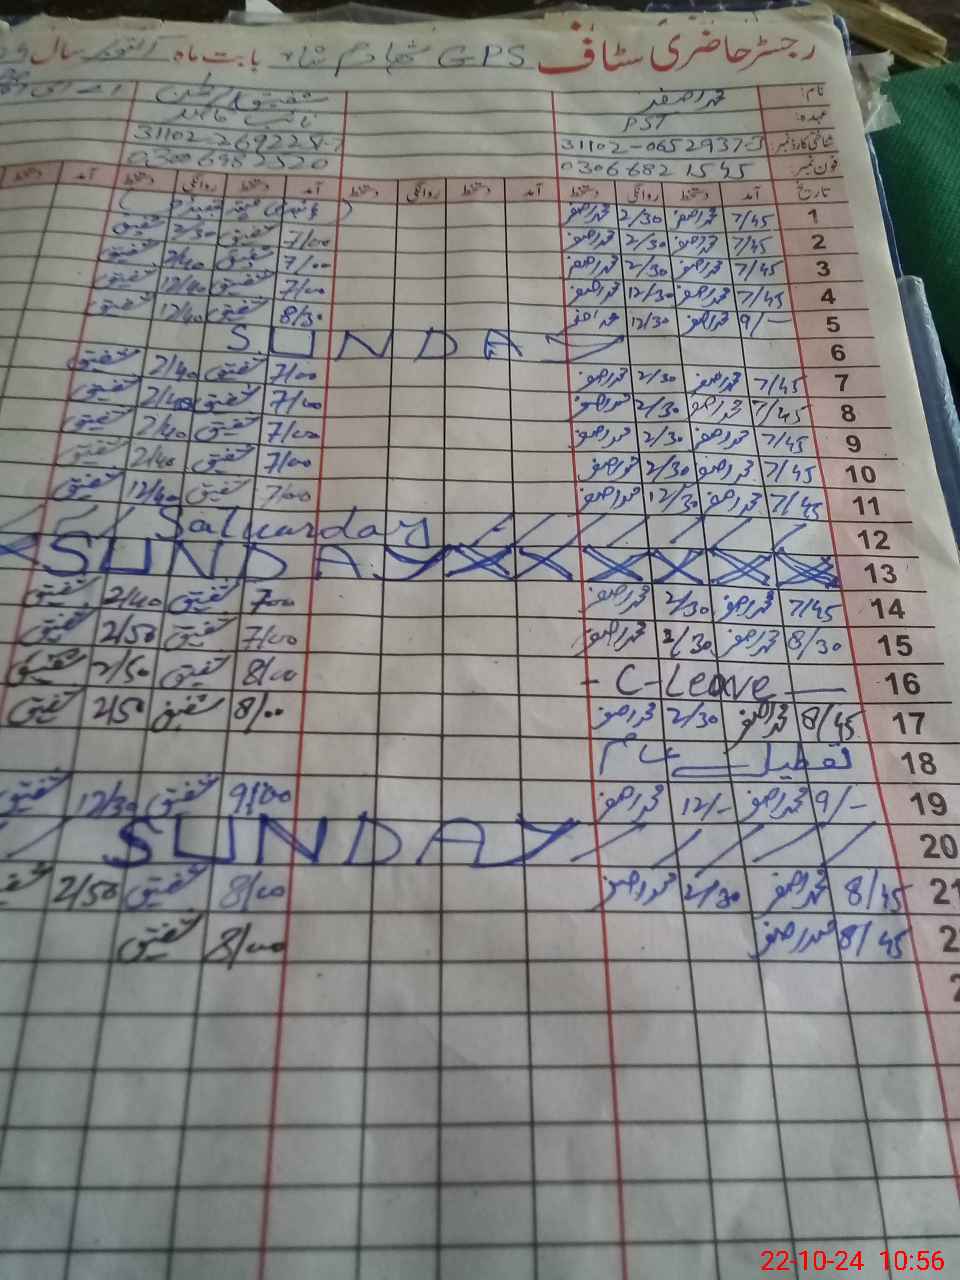 رجسٹر حاضری سٹاف GPS بابت ماہ اکتوبر سال
نام: محمد اصغر
عہدہ: PST نائب قاصد
شناختی کارڈ نمبر: 31102-0652937-3 31102-2692228-
فون نمبر: 03066821545 03006982320
تاریخ آمد دستخط روانگی دستخط آمد دستخط روانگی دستخط آمد دستخط روانگی دستخط آمد
1 7/45 محمد اصغر 2/30 محمد اصغر
2 7/45 محمد اصغر 2/30 محمد اصغر 7/00 شفیق 2/30 شفیق
3 7/45 محمد اصغر 2/30 محمد اصغر 7/00 شفیق 2/40 شفیق
4 7/45 محمد اصغر 12/30 محمد اصغر 7/00 شفیق 12/40 شفیق
5 9/- محمد اصغر 12/30 محمد اصغر 8/30 شفیق 12/40 شفیق
6 SUNDAY
7 7/45 محمد اصغر 2/30 محمد اصغر 7/00 شفیق 2/40 شفیق
8 7/45 محمد اصغر 2/30 محمد اصغر 7/00 شفیق 2/40 شفیق
9 7/45 محمد اصغر 2/30 محمد اصغر 7/00 شفیق 2/40 شفیق
10 7/45 محمد اصغر 2/30 محمد اصغر 7/00 شفیق 2/40 شفیق
11 7/45 محمد اصغر 12/30 محمد اصغر 7/00 شفیق 12/40 شفیق
12 Satuarday
13 SUNDAY
14 7/45 محمد اصغر 2/30 محمد اصغر 7/00 شفیق 2/40 شفیق
15 8/30 محمد اصغر 2/30 محمد اصغر 7/00 شفیق 2/50 شفیق
16 - C-Leave - 8/00 شفیق 2/50 شفیق
17 8/45 محمد اصغر 2/30 محمد اصغر 8/00 شفیق 2/50 شفیق
18 تعطیل
19 9/- محمد اصغر 12/- محمد اصغر 9/00 شفیق 12/30 شفیق
20 SUNDAY
21 8/45 محمد اصغر 2/30 محمد اصغر 8/00 شفیق 2/50 شفیق
2 8/45 محمد اصغر 8/00 شفیق
22-10-24 10:56